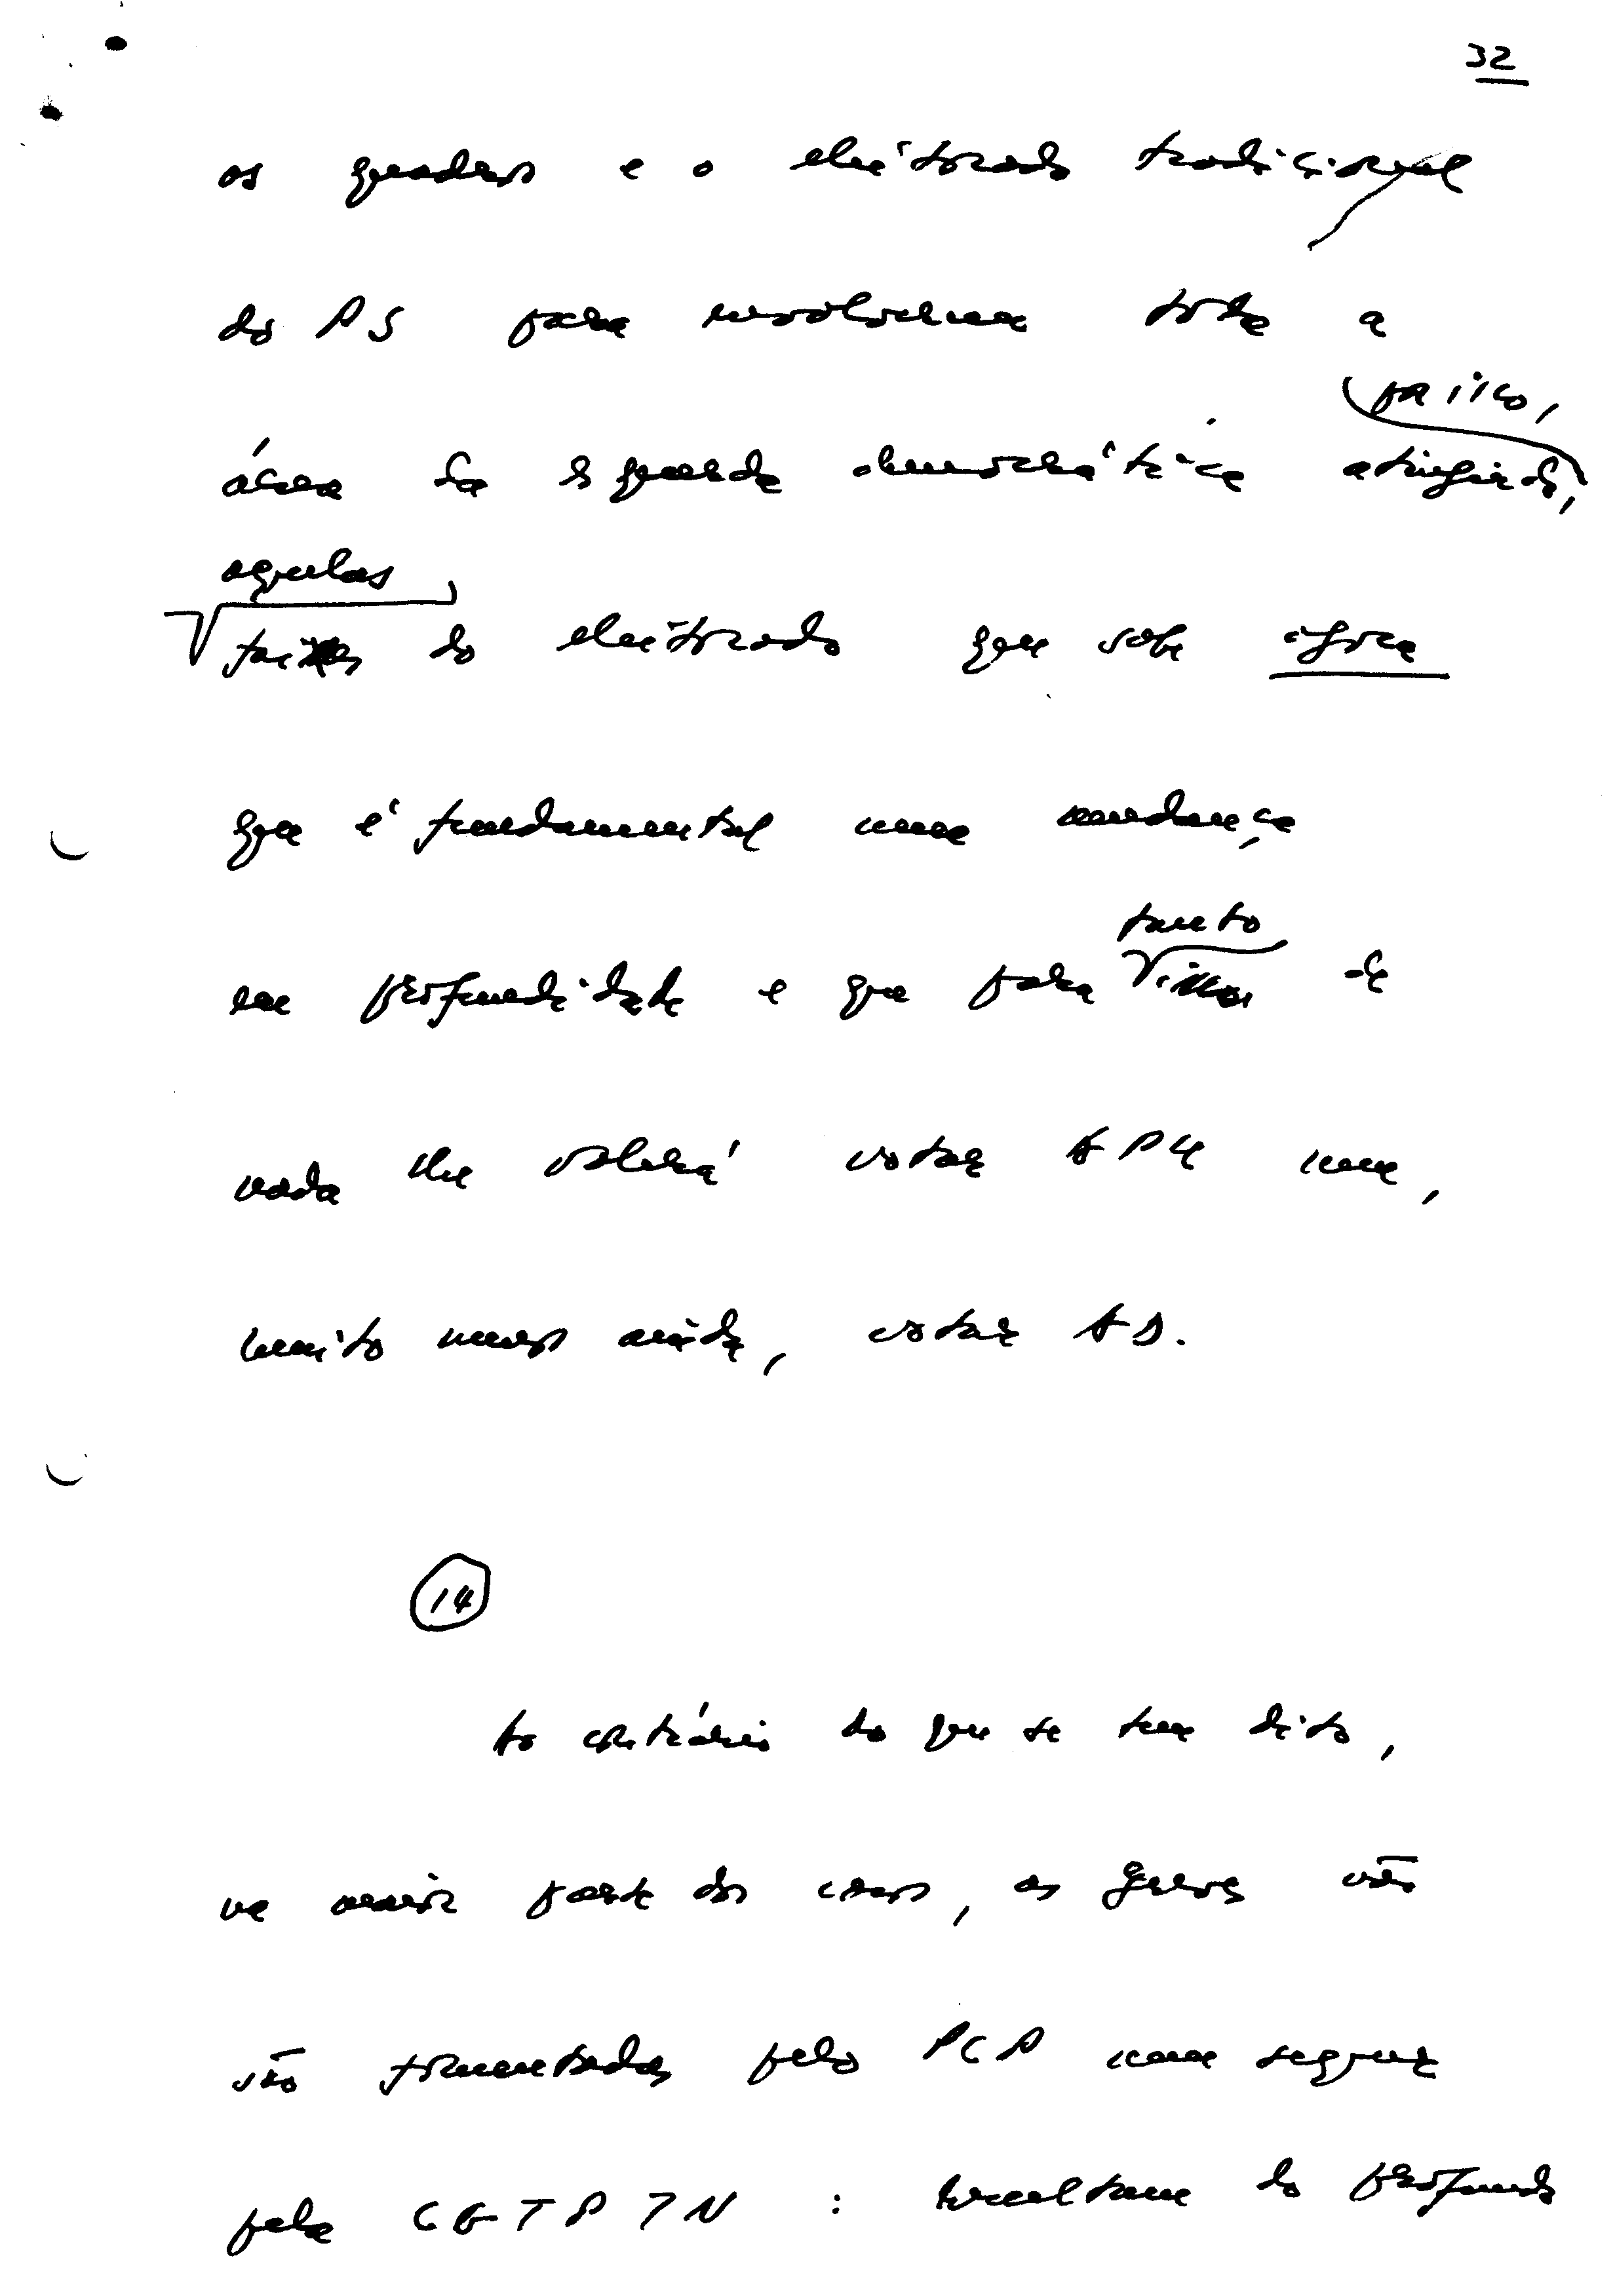 32
os quadros e o eleitorado tradicional
do PS para envolverem toda a
por isso,
área da esquerda democrática atingindo,
aquelas
faixas do eleitorado que sabe agora
que é fundamental uma mudança
em profundidade e que para tanto de
nada lhe valerá votar APU nem,
muito menos ainda, votar AD.
14
Ao contrário do que se tem dito,
na maior parte dos casos, as greves não
são fomentadas pelo PCP nem sequer
pela CGTP IN : resultam do profundo